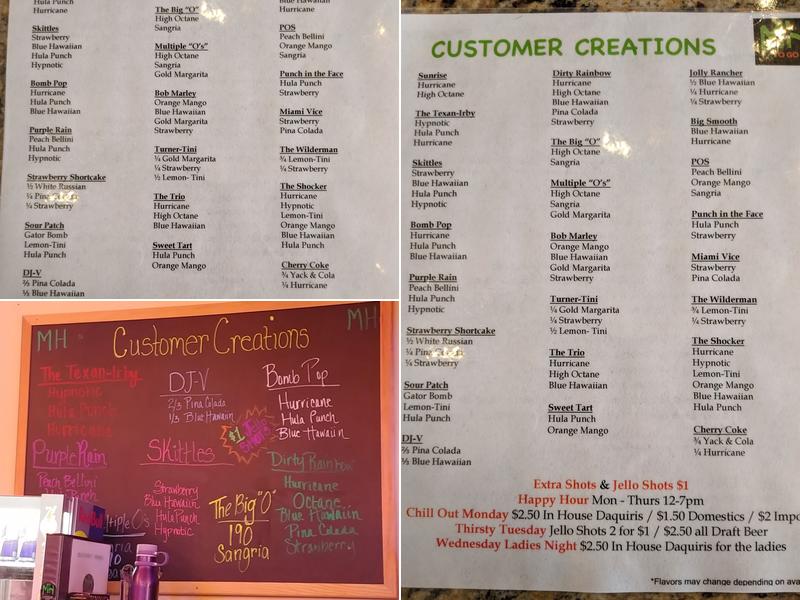 Hula Punch
Hurricane
Skittles
Strawberry
Blue Hawaiian
Hula Punch
Hypnotic
Bomb Pop
Hurricane
Hula Punch
Blue Hawaiian
Purple Rain
Peach Bellini
Hula Punch
Hypnotic
Strawberry Shortcake
½ White Russian
¼ Pina
¼ Strawberry
Sour Patch
Gator Bomb
Lemon-Tini
Hula Punch
DJ-V
⅔ Pina Colada
⅓ Blue Hawaiian
The Big "O"
High Octane
Sangria
Multiple "O's"
High Octane
Sangria
Gold Margarita
Bob Marley
Orange Mango
Blue Hawaiian
Gold Margarita
Strawberry
Turner-Tini
¼ Gold Margarita
¼ Strawberry
½ Lemon- Tini
The Trio
Hurricane
High Octane
Blue Hawaiian
Sweet Tart
Hula Punch
Orange Mango
Hurricane
POS
Peach Bellini
Orange Mango
Sangria
Punch in the Face
Hula Punch
Strawberry
Miami Vice
Strawberry
Pina Colada
The Wilderman
¾ Lemon-Tini
¼ Strawberry
The Shocker
Hurricane
Hypnotic
Lemon-Tini
Orange Mango
Blue Hawaiian
Hula Punch
Cherry Coke
¾ Yack & Cola
¼ Hurricane
CUSTOMER CREATIONS
MH
TO GO
Sunrise
Hurricane
High Octane
The Texan-Irby
Hypnotic
Hula Punch
Hurricane
Skittles
Strawberry
Blue Hawaiian
Hula Punch
Hypnotic
Bomb Pop
Hurricane
Hula Punch
Blue Hawaiian
Purple Rain
Peach Bellini
Hula Punch
Hypnotic
Strawberry Shortcake
½ White Russian
¼ Pina
¼ Strawberry
Sour Patch
Gator Bomb
Lemon-Tini
Hula Punch
DJ-V
⅔ Pina Colada
⅓ Blue Hawaiian
Dirty Rainbow
Hurricane
High Octane
Blue Hawaiian
Pina Colada
Strawberry
The Big "O"
High Octane
Sangria
Multiple "O's"
High Octane
Sangria
Gold Margarita
Bob Marley
Orange Mango
Blue Hawaiian
Gold Margarita
Strawberry
Turner-Tini
¼ Gold Margarita
¼ Strawberry
½ Lemon- Tini
The Trio
Hurricane
High Octane
Blue Hawaiian
Sweet Tart
Hula Punch
Orange Mango
Jolly Rancher
½ Blue Hawaiian
¼ Hurricane
¼ Strawberry
Big Smooth
Blue Hawaiian
Hurricane
POS
Peach Bellini
Orange Mango
Sangria
Punch in the Face
Hula Punch
Strawberry
Miami Vice
Strawberry
Pina Colada
The Wilderman
¾ Lemon-Tini
¼ Strawberry
The Shocker
Hurricane
Hypnotic
Lemon-Tini
Orange Mango
Blue Hawaiian
Hula Punch
Cherry Coke
¾ Yack & Cola
¼ Hurricane
Extra Shots & Jello Shots $1
Happy Hour Mon - Thurs 12-7pm
Chill Out Monday $2.50 In House Daquiris / $1.50 Domestics / $2 Impo
Thirsty Tuesday Jello Shots 2 for $1 / $2.50 all Draft Beer
Wednesday Ladies Night $2.50 In House Daquiris for the ladies
*Flavors may change depending on ava
MH
Customer Creations
MH
The Texan-Irby
Hypnotic
Hula Punch
Hurricane
Purple Rain
Peach Bellini
Punch
DJ-V
2/3 Pina Colada
1/3 Blue Hawaiin
$1 Jello Shots
Skittles
Strawberry
Blue Hawaiin
Hula Punch
Hypnotic
ltiple O's
ria
The Big "O"
190
Sangria
Bomb Pop
Hurricane
Hula Punch
Blue Hawaiin
Dirty Rainbow
Hurricane
Octane
Blue Hawaiin
Pina Colada
Strawberry
MH